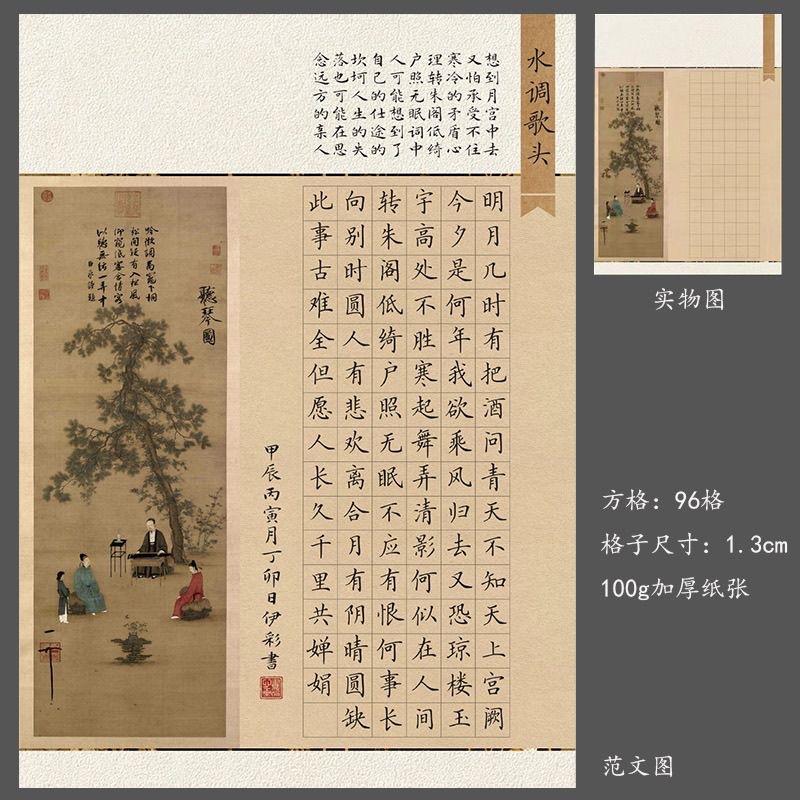 水调歌头
想到月宫中去
又怕承受不住
寒冷的矛盾心
理转朱阁低绮
户照无眠词中
人可能想到了
自己的仕途的
坎坷人生的失
落也可能在思
念远方的亲人
明月几时有把酒问青天不知天上宫阙
今夕是何年我欲乘风归去又恐琼楼玉
宇高处不胜寒起舞弄清影何似在人间
转朱阁低绮户照无眠不应有恨何事长
向别时圆人有悲欢离合月有阴晴圆缺
此事古难全但愿人长久千里共婵娟
甲辰丙寅月丁卯日伊彩書
聽琴圖
吟徵調商竈下桐
松間疑有入松風
仰窺低審含情客
以聽無絃一弄中
臣京謹題
实物图
方格：96格
格子尺寸：1.3cm
100g加厚纸张
范文图